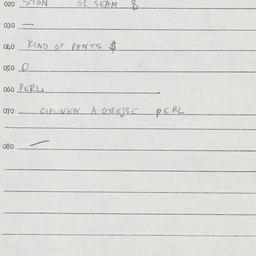 020 STON GL SEAM $
030 —
040 KIND OF PANTS $
050 O
060 PERL
070 A PERL
080 —